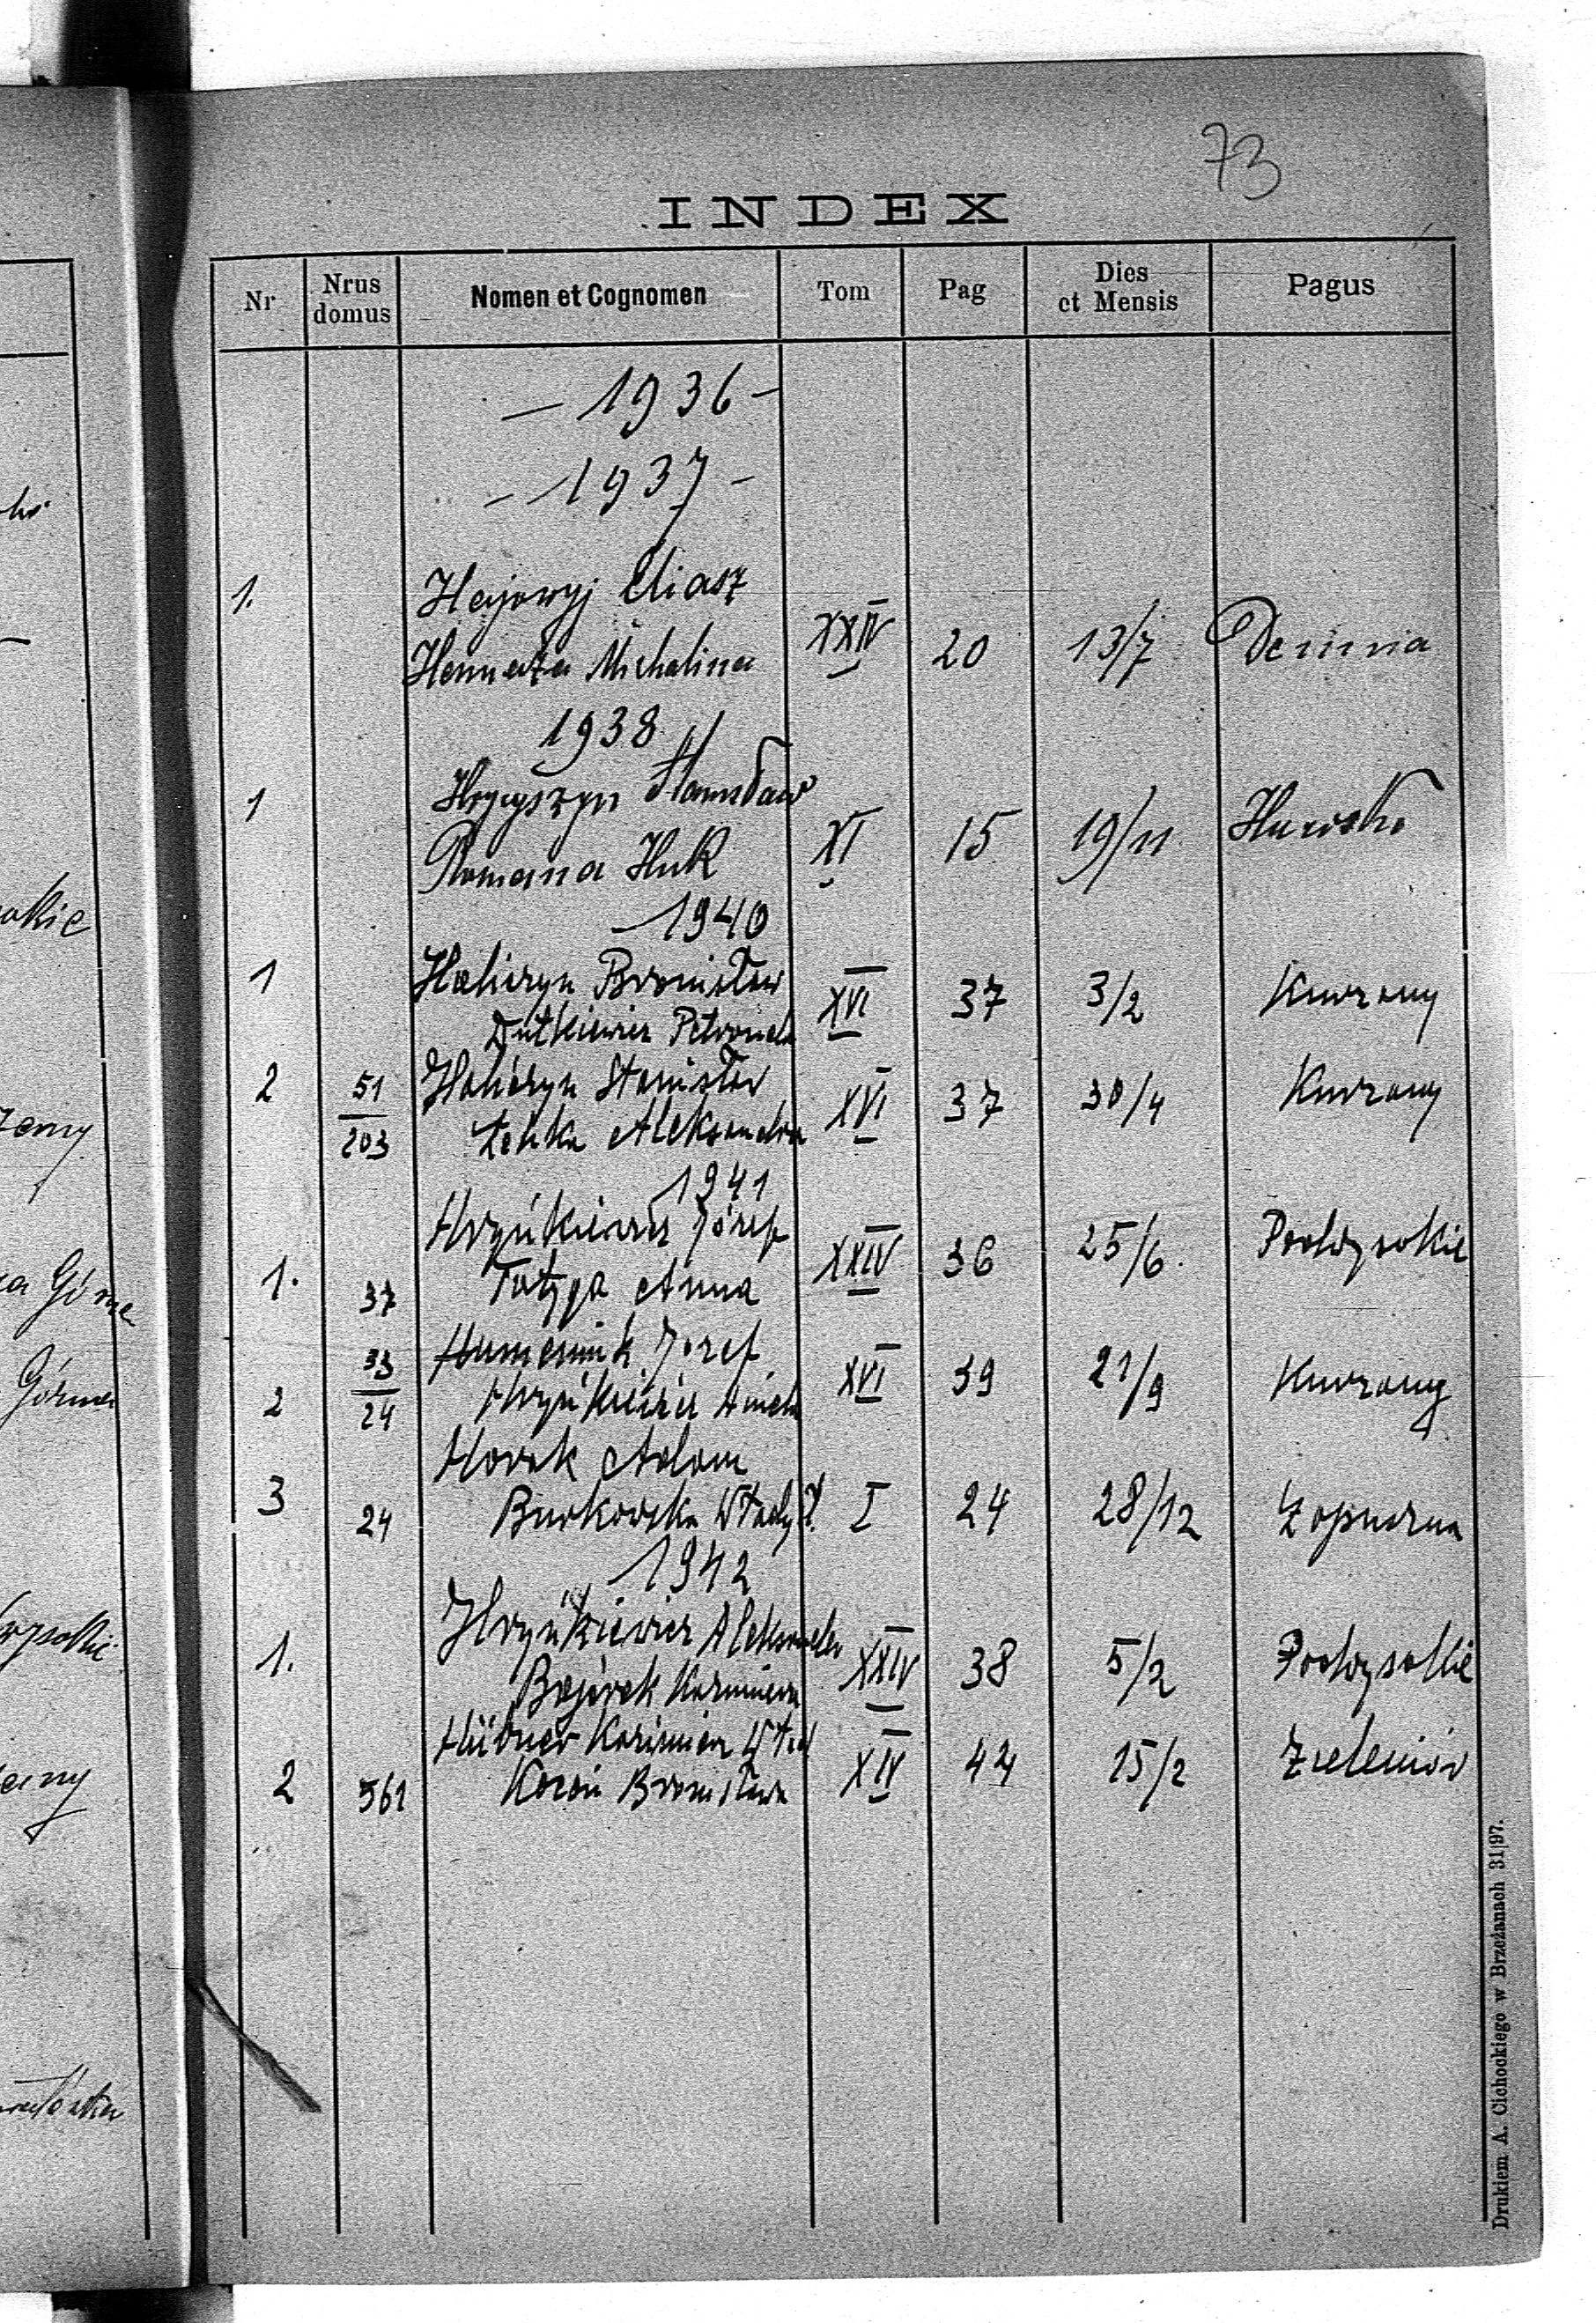 73
INDEX
Nr Nrus domus Nomen et Cognomen Tom Pag Dies et Mensis Pagus
— 1936 —
— 1937 —
1. Hajowyj Eliasz
Hennata Michalina XXIV 20 13/7 Demnia
1938
1 Hrycyszyn Stanisław
Romana Huk XI 15 19/11 Hucisko
— 1940
1 Haliczyn Bronisław XVI 37 3/2 Kurzany
Dutkiewicz Petronela
2 51/203 Haliczyn Stanisław XVI 37 30/4 Kurzany
Aleksandra
1941
Hryńkiewicz Józef XXIV 36 25/6. Podwysokie
1. 37 Anna
33/24 Józef XVI 39 21/9 Kurzany
2 Hryńkiewicz Aniela
Horak Adam
3 24 Burkowska Władysł. I 24 28/12 Łopuszna
1942
Hryńkiewicz Aleksander XXIV 38 5/2 Podwysokie
1. Bojarek Kazimiera
Hübner Kazimierz Wład XIV 44 15/2
2 561 Bronisława
Drukiem A. Cichockiego w Brzeżanach 31|97.